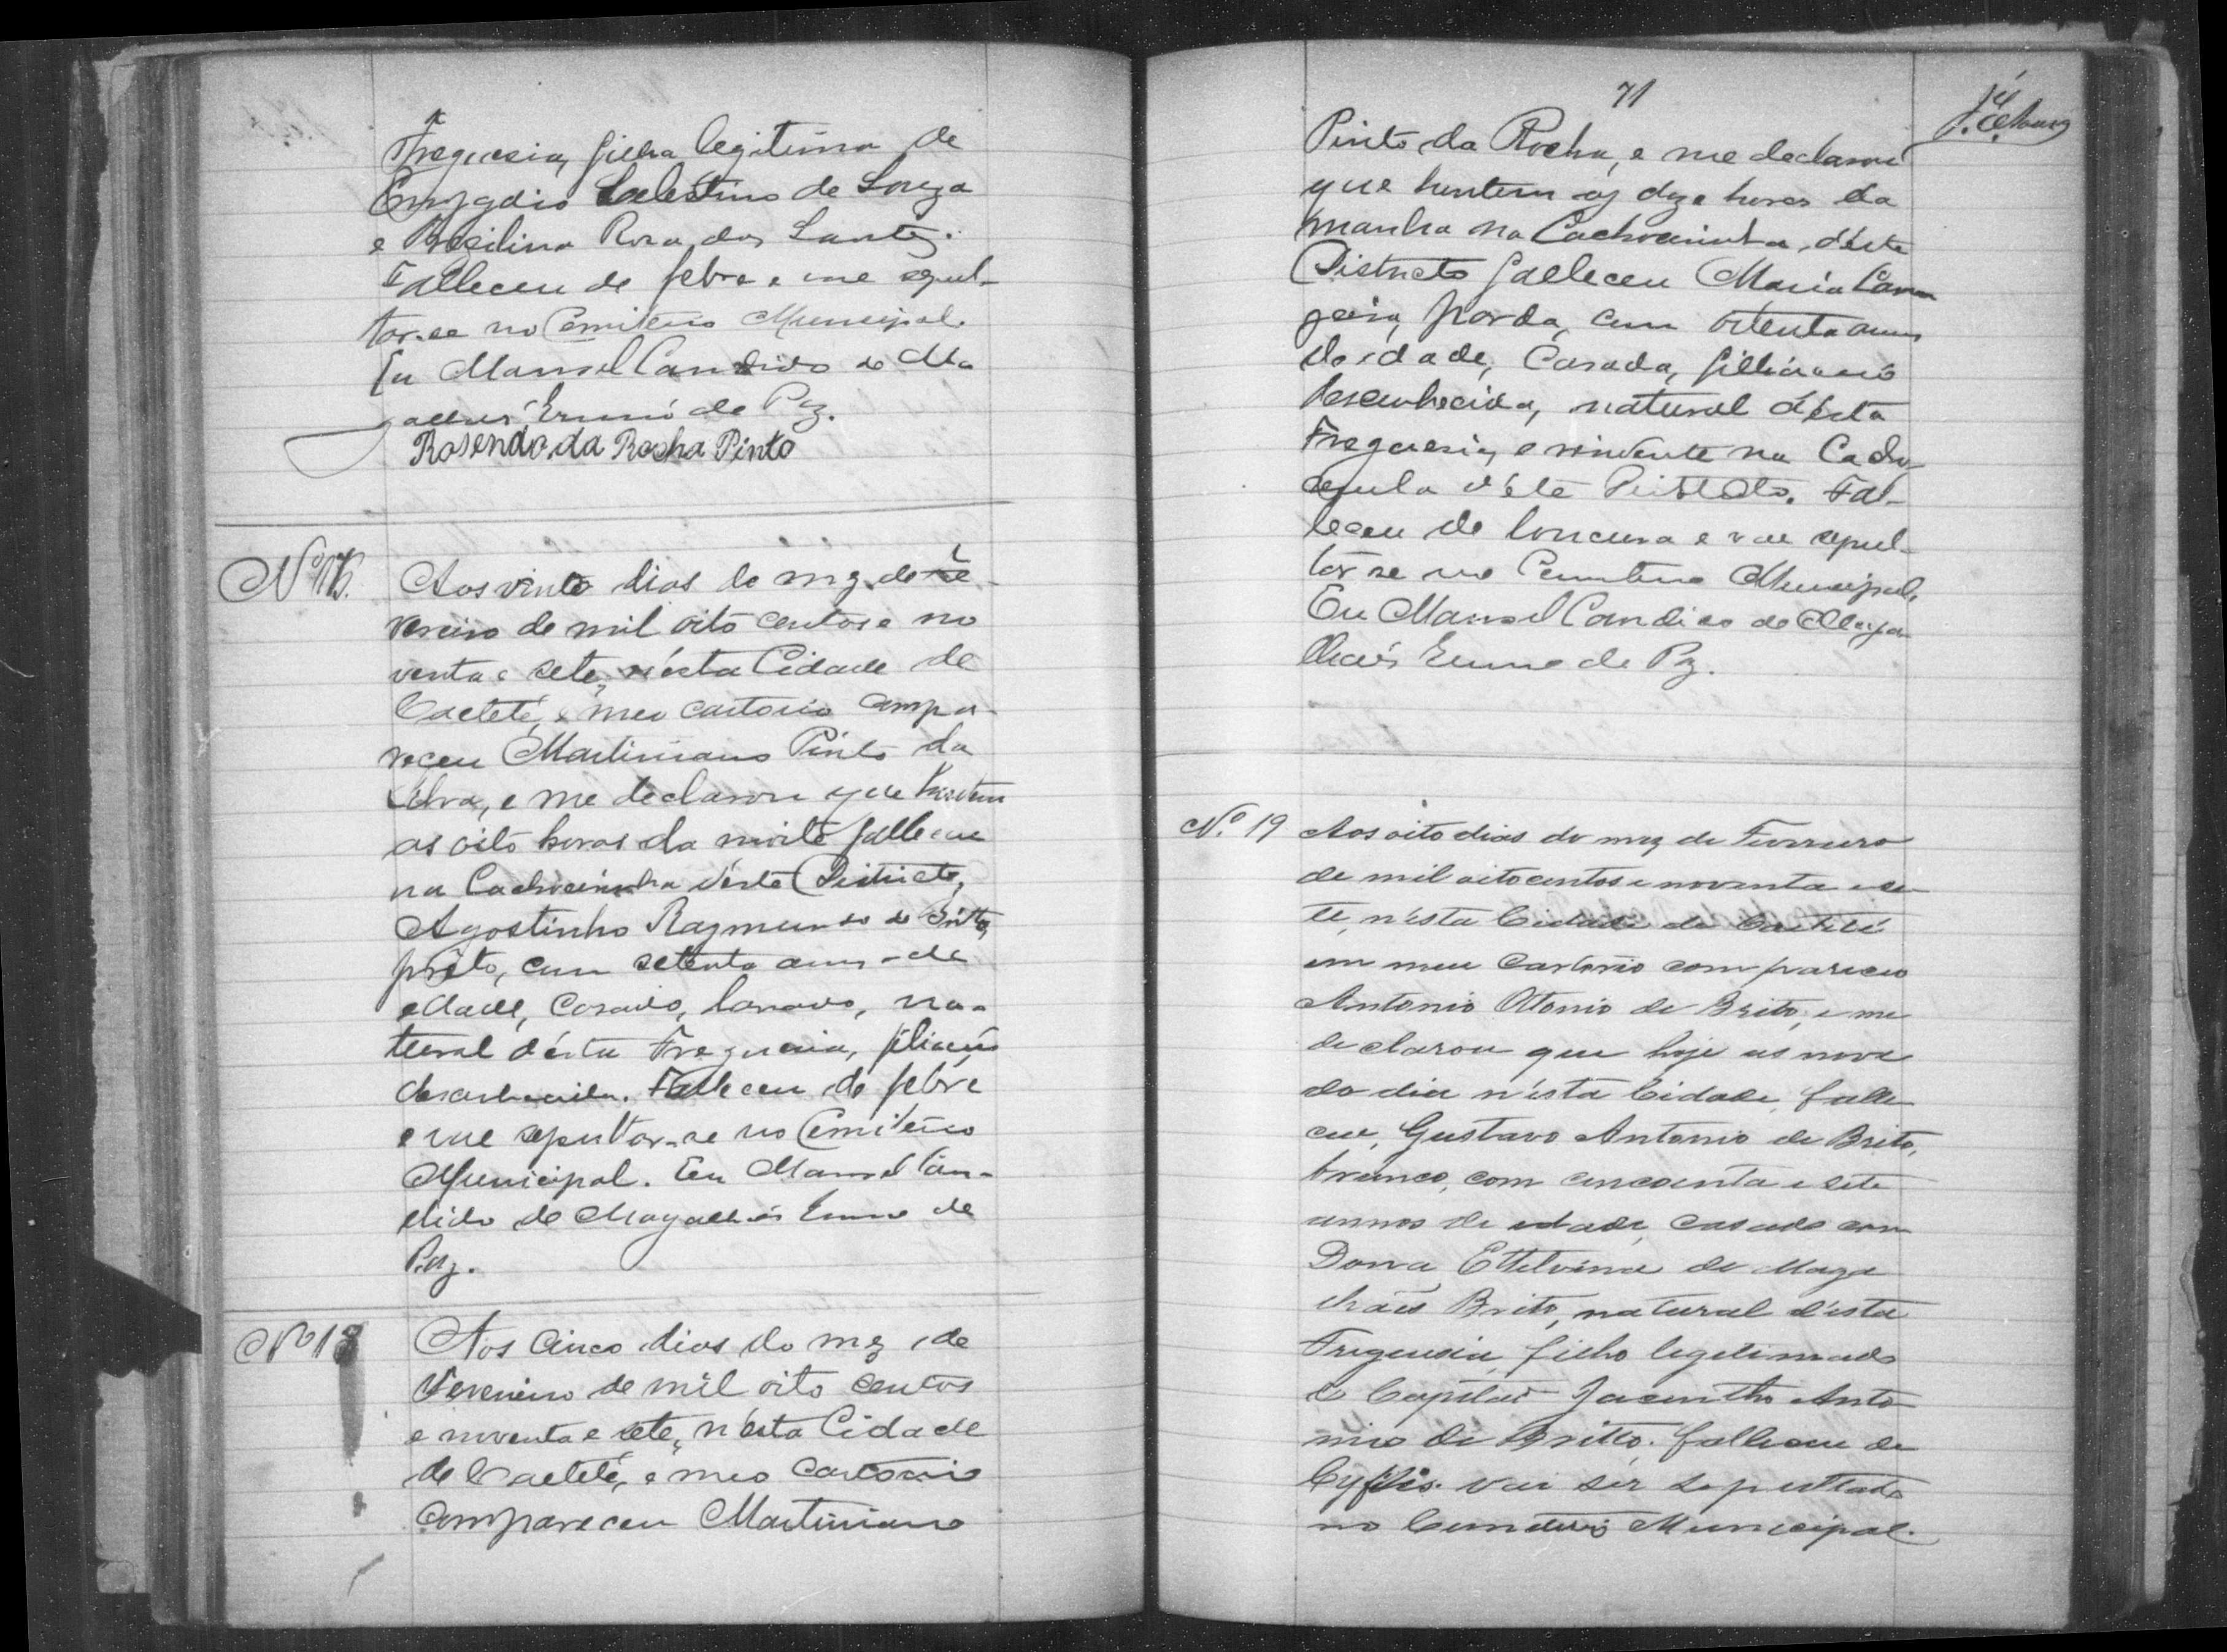 Freguesia, filha legitima de
Emygdio Celestino de Souza
e Brazilina Rosa dos Santos.
Falleceu de febre e vae sepul-
tar-se no Cemiterio Municipal.
Eu Manoel Candido de Ma
galhães Escrivão de Paz.
Rosendo da Rocha Pinto
Nº
Aos vinte dias do mez de Fe
vereiro de mil oito centos e no
venta e sete, n'ésta Cidade de
Caeteté, e meu cartorio compa-
receu Martiniano Pinto da
Silva, e me declarou que hontem
as oito horas da noite falleceu
na Cachoeirinha d'éste Districto,
Agostinho Raymundo de Britto,
prêto, com setenta annos de
edade, casado, lavrador, na-
tural d'ésta Freguesia, filiação
desconhecida. Falleceu de febre
e vae sepultar-se no Cemiterio
Municipal. Eu Manoel Can-
dido de Magalhães Escrivão de
Paz.
Nº 18
Aos cinco dias do mez de
Fevereiro de mil oito centos
e noventa e sete, n'ésta Cidade
de Caeteté, e meo cartorio
compareceu Martiniano
71
Pinto da Rocha, e me declarou
que hontem as doze horas da
manha na Cachoeirinha, d'éste
Districto falleceu Maria
parda, com oitenta annos
de edade, Casada, filiação
desconhecida, natural d'ésta
Freguesia, e residente na Cacho
eirinha d'éste Districto. Fal-
leceu de loucura e vae sepul-
tar se no Cemiterio Municipal.
Eu Manoel Candido de Maga
lhães Escrivão de Paz.
Nº. 19
Aos oito dias do mez de Fevereiro
de mil oitocentos e noventa e se-
te, n'ésta Cidade de Caeteté
em meu Cartorio compareceu
Antonio Otonio de Brito, e me
declarou que hoje as nove
do dia n'ésta Cidade, falle
ceu, Gustavo Antonio de Brito,
branco, com cincoenta e sete
annos de edade, casado com
Dona Ettelvina de Maga
lhães Brito, natural d'esta
Freguesia, filho legitimado
do Capitão Jacintho Anto
nio de Britto. falleceu de
Cyfilis. vai sér sepultado
no Cemiterio Municipal.